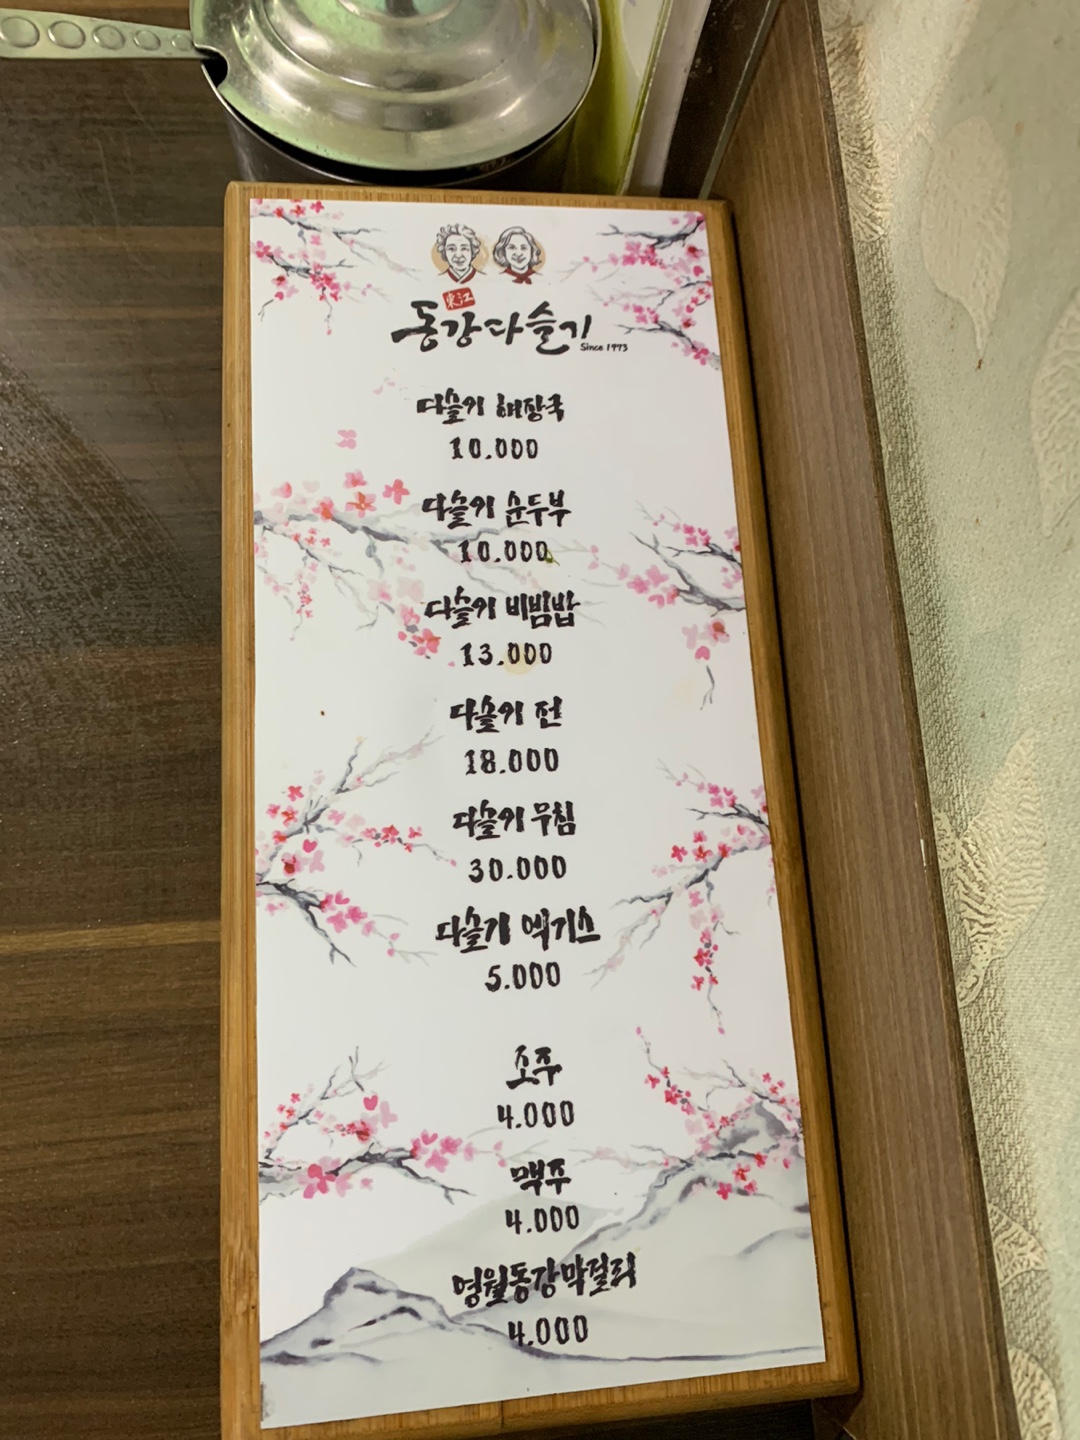 東江
동강다슬기
Since 1973
다슬기 해장국
10.000
다슬기 순두부
10.000
다슬기 비빔밥
13.000
다슬기 전
18.000
다슬기 무침
30.000
다슬기 엑기스
5.000
소주
4.000
맥주
4.000
영월동강막걸리
4.000